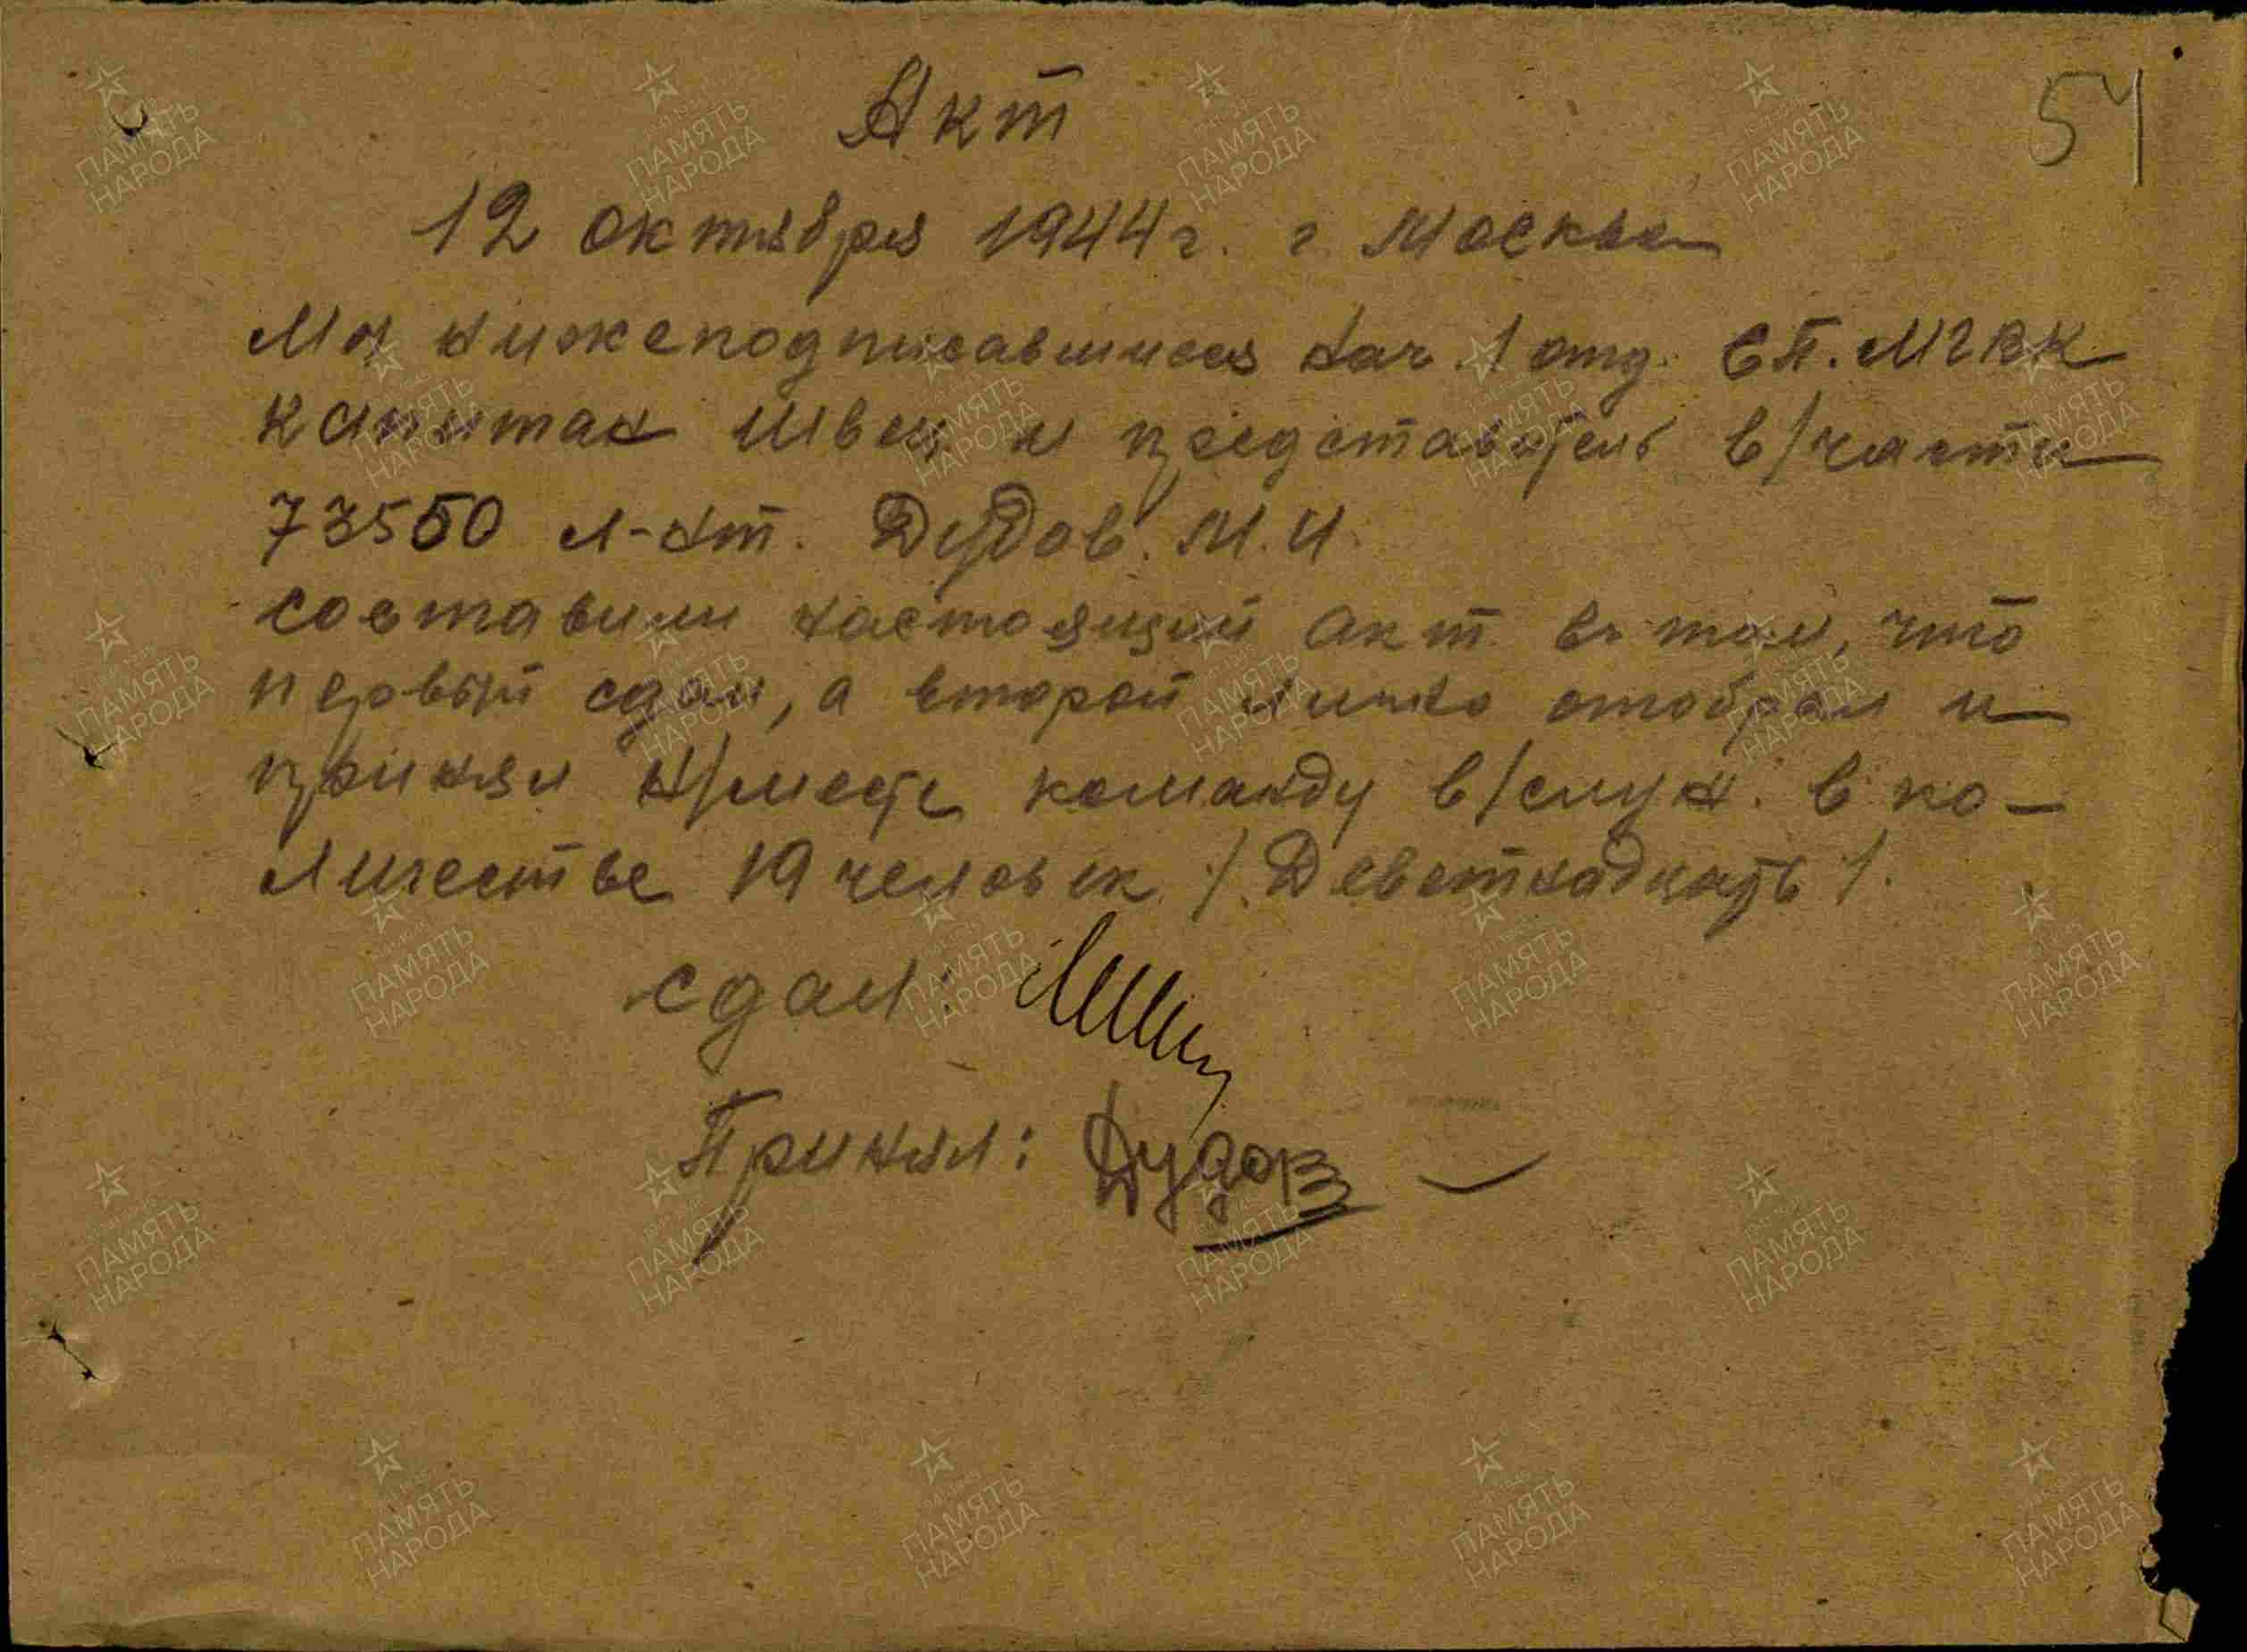 51
Акт
12 октября 1944г. г. Москва
Мы нижеподписавшиеся нач 1 отд. СП. МГВК
капитан Швец и представитель в/части
73550 л-нт. Дудов. М.И.
составили настоящий акт в том, что
первый сдал, а второй лично отобрал и
принял н/месте команду в/служ. в ко-
личестве 19 человек /. Девятнадцать /.
сдал:
Принял: Дудов
ПАМЯТЬ НАРОДА